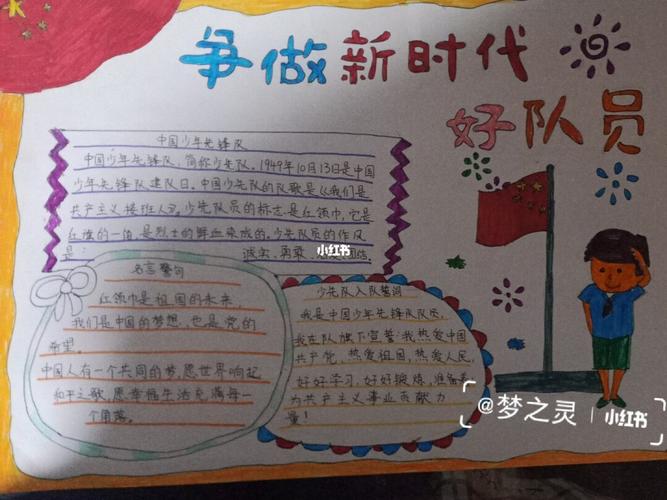 争做新时代
好队员
中国少年先锋队
中国少年先锋队，简称少先队。1949年10月13日是中国
少年先锋队建队日。中国少先队的队歌是《我们是
共产主义接班人》。少先队员的标志是红领巾，它是
红旗的一角，是烈士的鲜血染成的。少先队员的作风
是： 诚实、勇敢、团结
小红书
名言警句
红领巾是祖国的未来，
我们是中国的梦想，也是党的
希望。
中国人有一个共同的梦，愿世界响起
和平之歌，愿幸福生活充满每一
个角落。
少先队入队誓词
我是中国少年先锋队队员。
我在队旗下宣誓：我热爱中国
共产党，热爱祖国，热爱人民，
好好学习，好好锻炼，准备着
为共产主义事业贡献力
量！
@梦之灵 小红书